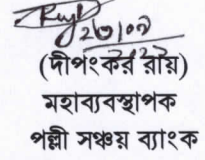 (দীপংকর রায়)
মহাব্যবস্থাপক
পল্লী সঞ্চয় ব্যাংক